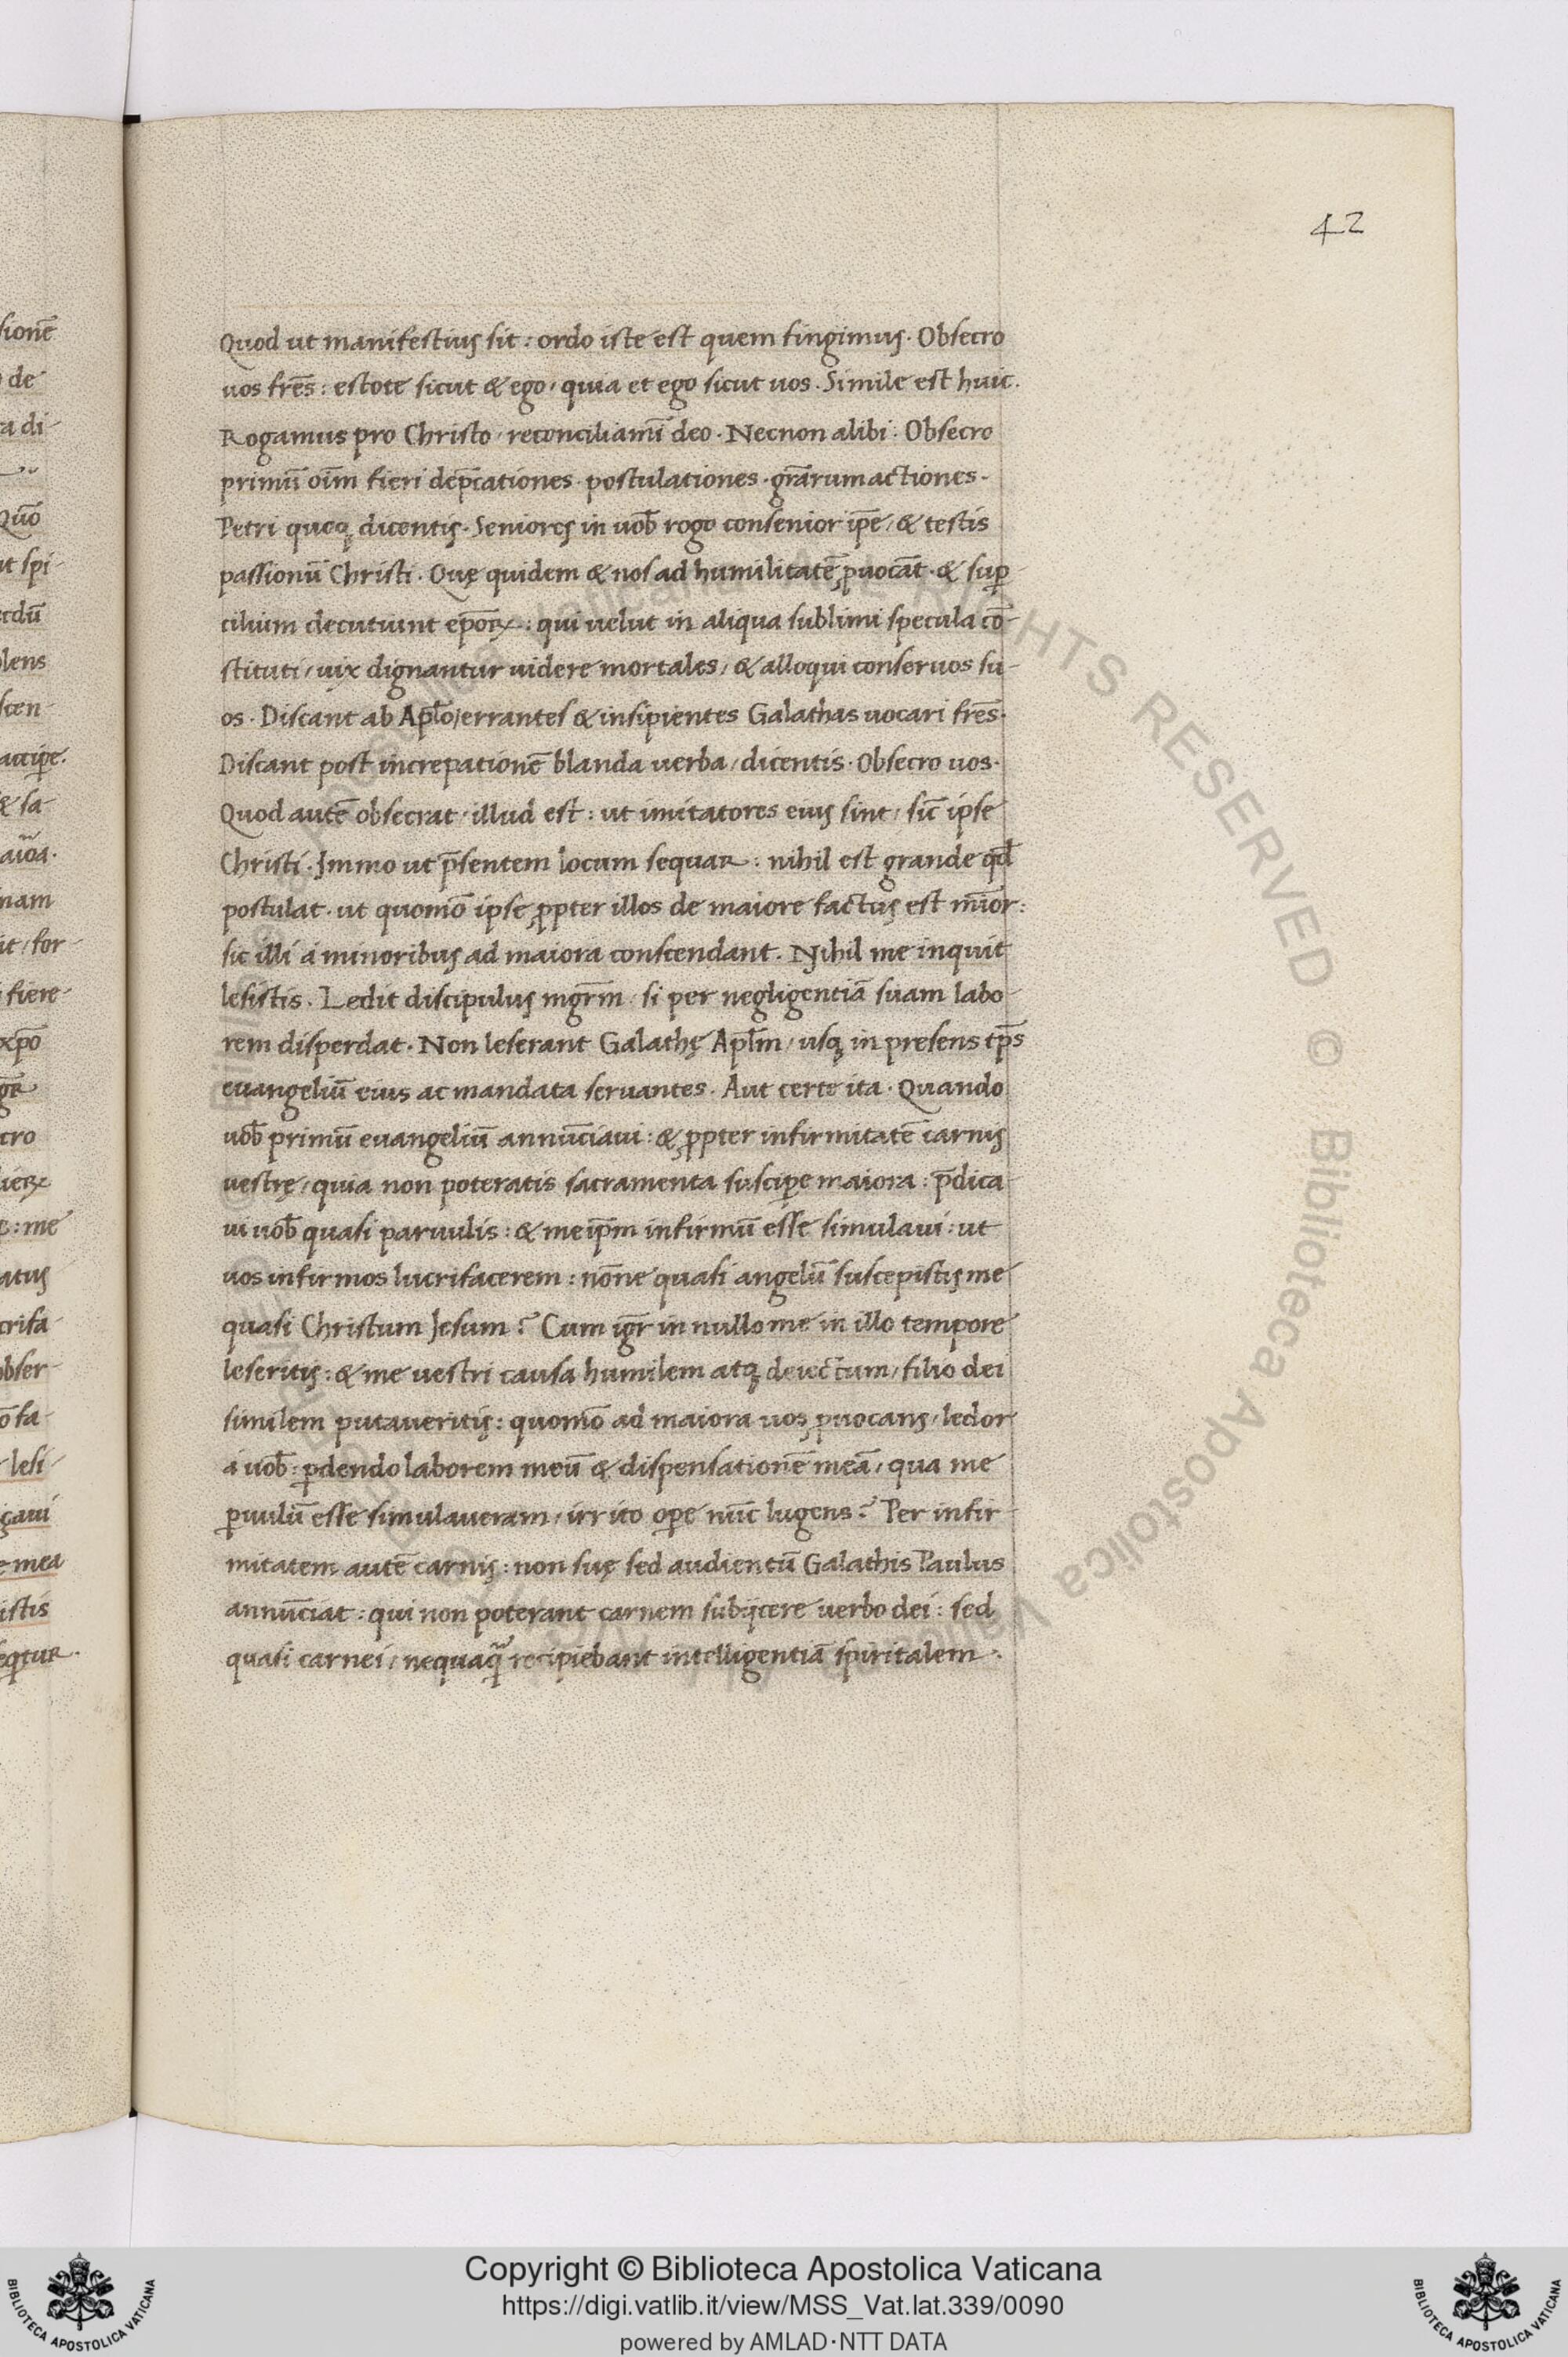 42
Quod ut manifestius sit : ordo iste est quem fingimus · Obsecro
uos fr̄es : estote sicut & ego, quia et ego sicut uos · Simile est huic ·
Rogamus pro Christo, reconciliamı̄ deo · Necnon alibi : Obsecro
primū oı̄m fieri dep̄cationes · postulationes · gr̄arum actiones ·
Petri quoqꝫ dicentis · Seniores in uob̄ rogo consenior ip̄e, & testis
passionū Christi · Quę quidem & nos ad humilitatē ꝓuocāt · & suꝑ-
cilium decutiunt ep̄oꝝ : qui uelut in aliqua sublimi specula cō-
stituti, uix dignantur uidere mortales, & alloqui conseruos su-
os · Discant ab Apl̄o, errantes & insipientes Galathas uocari fr̄es ·
Discant post increpationē blanda uerba, dicentis · Obsecro uos ·
Quod autē obsecrat, illud est : ut imitatores eius sint, sic̄ ipse
Christi · Immo ut p̄sentem locum sequar : nihil est grande qd̄
postulat · ut quomō ipse ꝓpter illos de maiore factus est mı̄or :
sic illi á minoribus ad maiora conscendant · Nihil me inquit
lesistis · Ledit discipulus mgr̄m, si per negligentiā suam labo-
rem disperdat · Non leserant Galathę Apl̄m, usqꝫ in presens tp̄s
euangeliū eius ac mandata seruantes · Aut certe ita · Quando
uob̄ primū euangeliū annūciaui : & ꝓpter infirmitatē carnis
uestrę, quia non poteratis sacramenta susciꝑe maiora : p̄dica-
ui uob̄ quasi paruulis : & meip̄m infirmū esse simulaui : ut
uos infirmos lucrifacerem : nōne quasi angelū suscepistis me
quasi Christum Jesum ? Cum igr̄ in nullo me in illo tempore
leseritis : & me uestri causa humilem atqꝫ deiectum, filio dei
similem putaueritis : quomō ad maiora uos ꝓuocans, ledor
á uob̄ : ꝑdendo laborem meū & dispensationē meā, qua me
ꝑuulū esse simulaueram, irrito oꝑe nūc lugens ? Per infir-
mitatem autē carnis : non suę sed audientū Galathis Paulus
annūciat : qui non poterant carnem subijcere uerbo dei : sed
quasi carnei, nequaq̄ recipiebant intelligentiā spiritalem ·
Copyright © Biblioteca Apostolica Vaticana
https://digi.vatlib.it/view/MSS_Vat.lat.339/0090
powered by AMLAD·NTT DATA